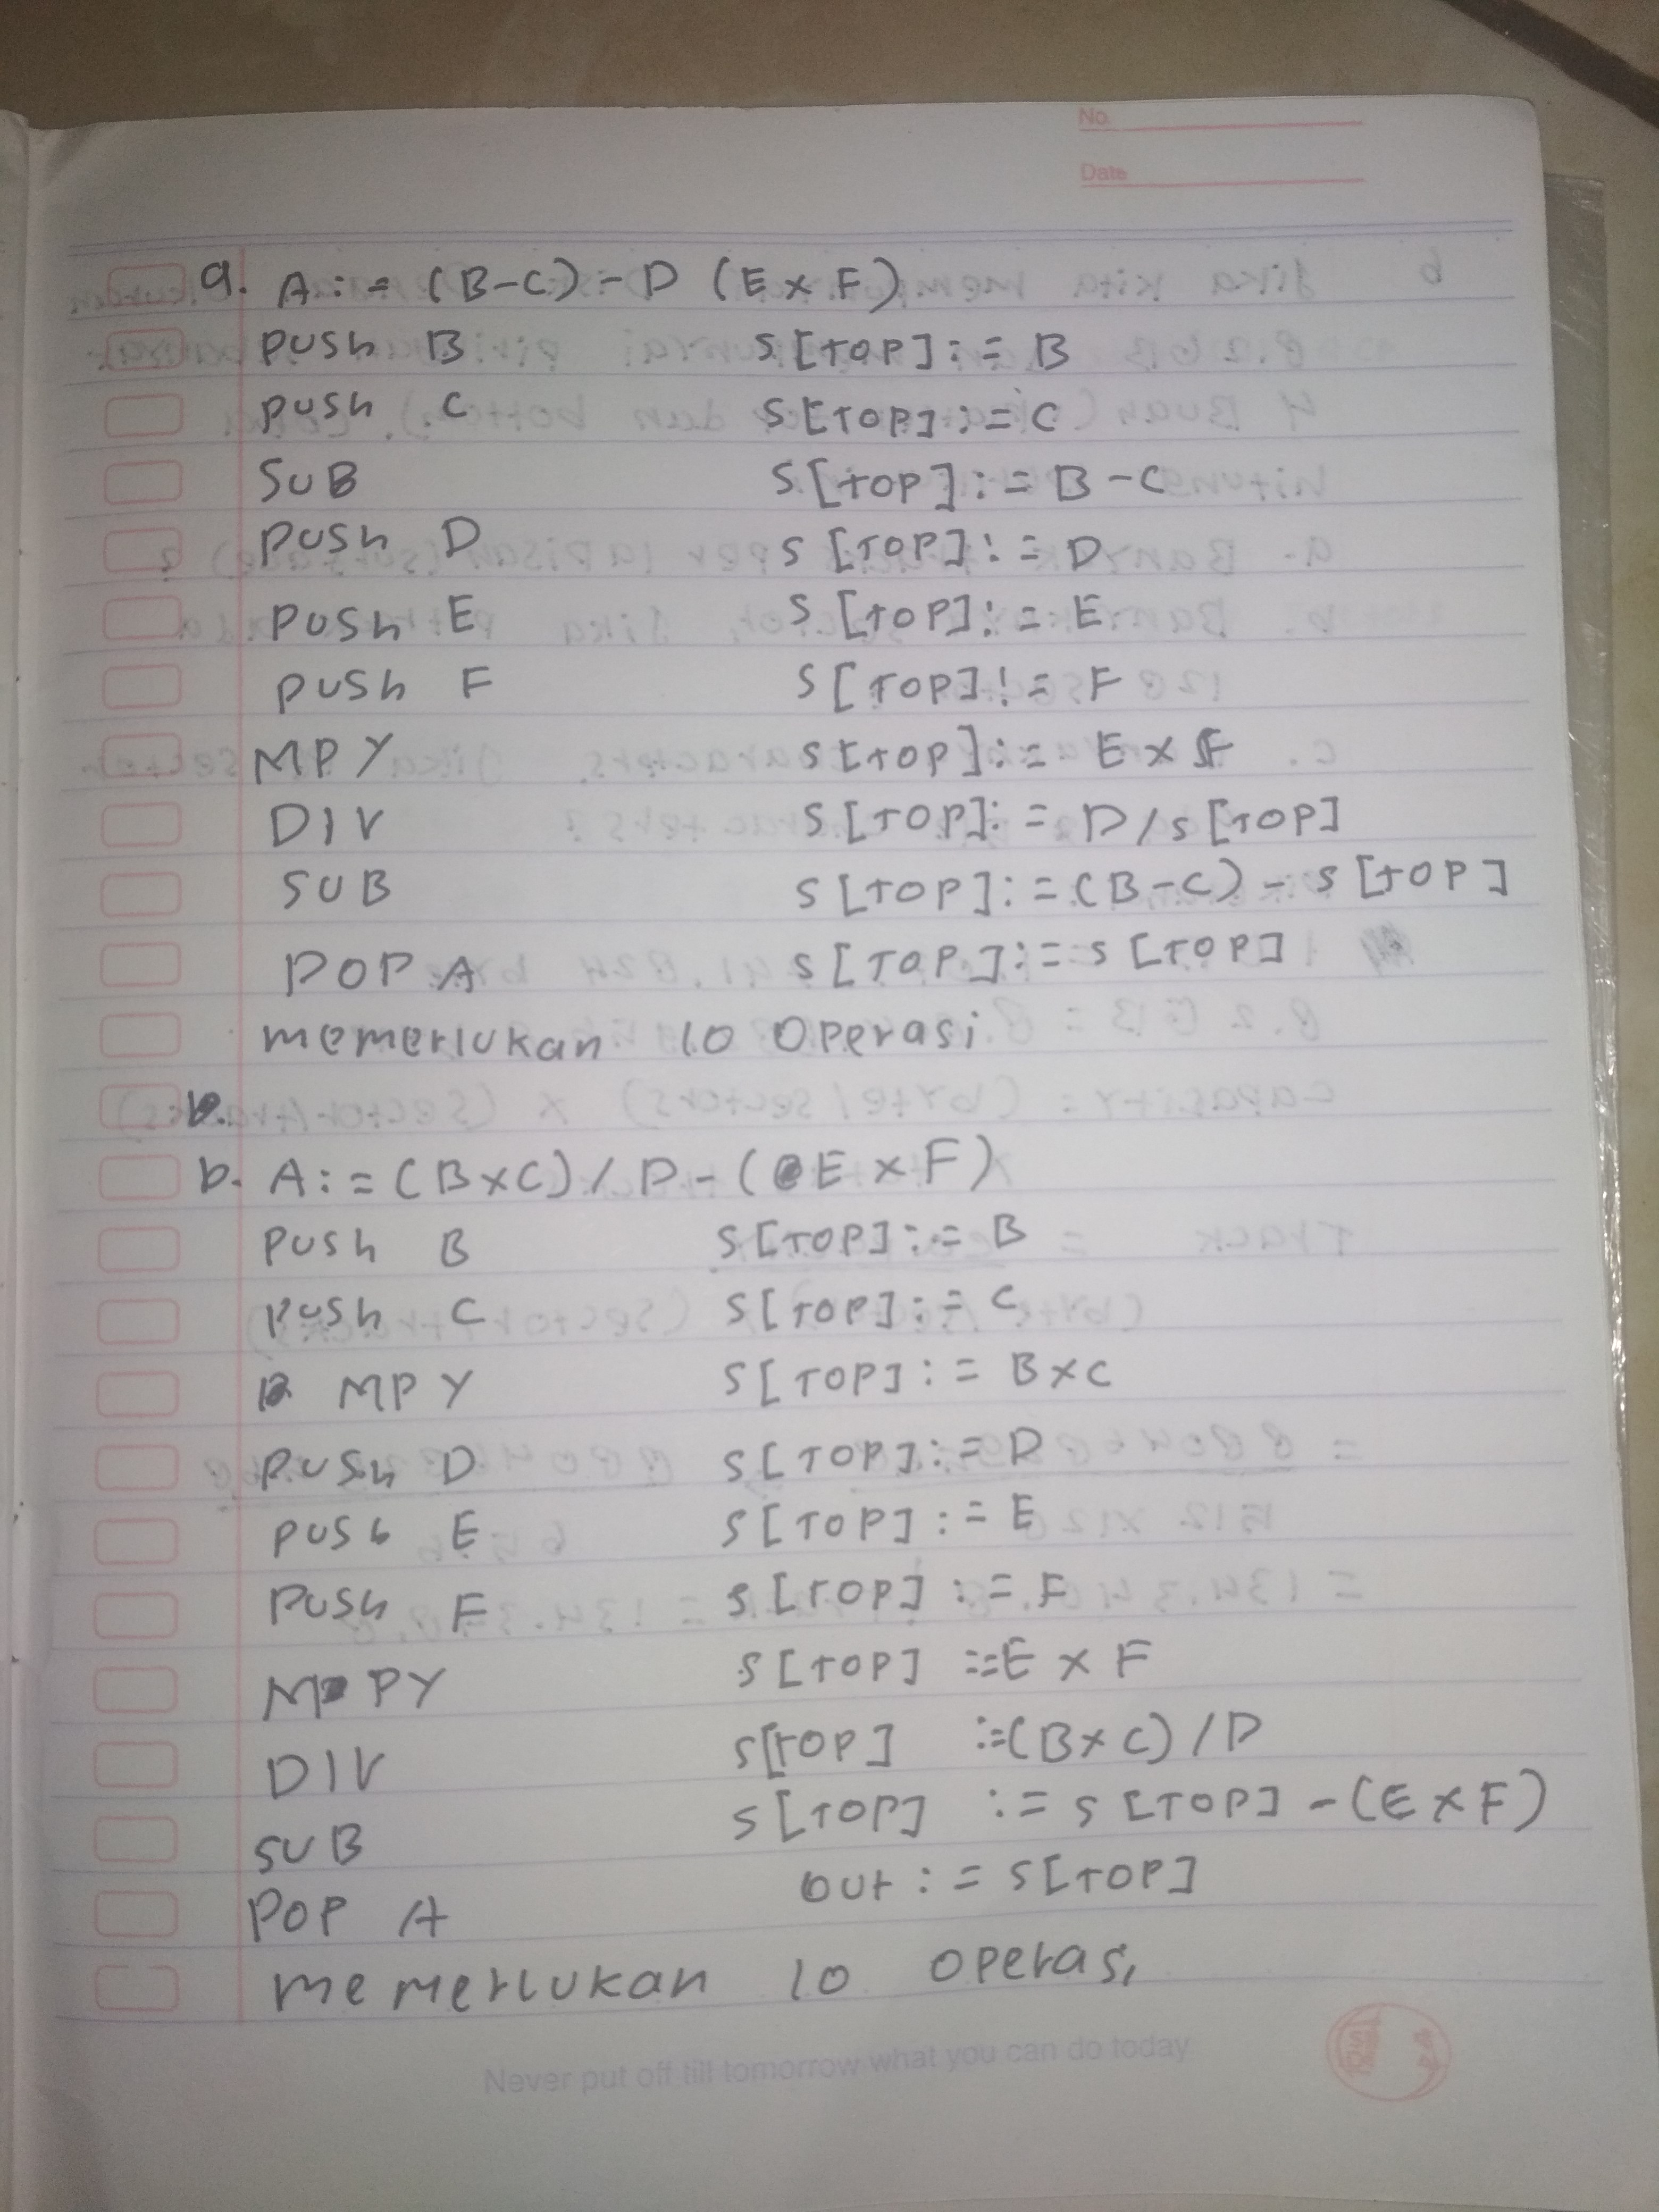 No.
Date
a. A := (B-C) - D (E x F)
PUSH B S[TOP] := B
PUSH C S[TOP] := C
SUB S[TOP] := B - C
PUSH D S[TOP] := D
PUSH E S[TOP] := E
PUSH F S[TOP] := F
MPY S[TOP] := E x F
DIV S[TOP] := D/S[TOP]
SUB S[TOP] := (B-C) - S[TOP]
POP A S[TOP] := S[TOP]
memerlukan 10 operasi
b. A := (BxC) / D - (E x F)
PUSH B S[TOP] := B
PUSH C S[TOP] := C
MPY S[TOP] := BxC
PUSH D S[TOP] := D
PUSH E S[TOP] := E
PUSH F S[TOP] := F
MPY S[TOP] := E x F
DIV S[TOP] := (BxC) / D
SUB S[TOP] := S[TOP] - (E x F)
POP A out := S[TOP]
memerlukan 10 operasi
Never put off till tomorrow what you can do today